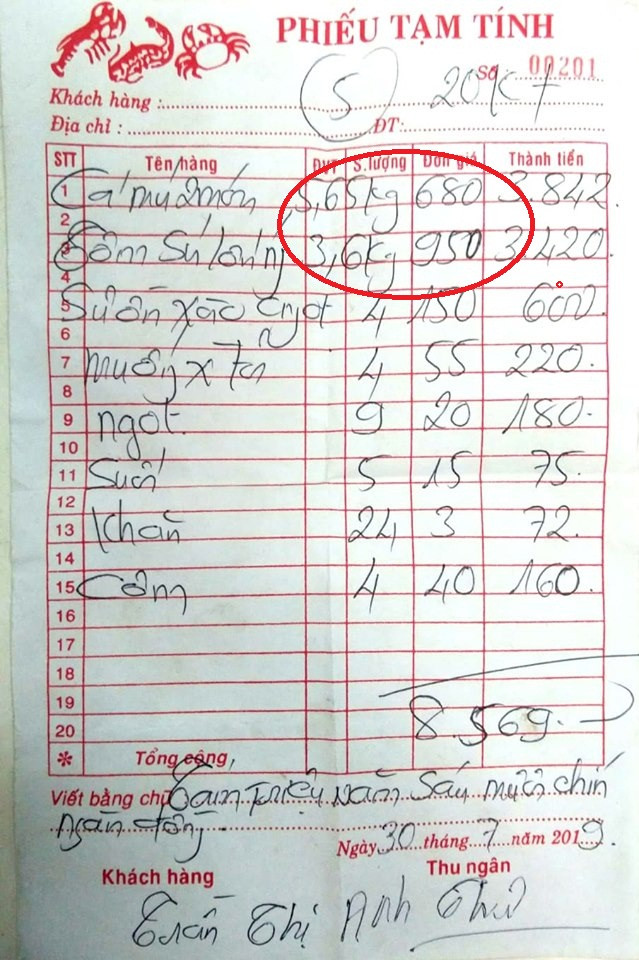 PHIẾU TẠM TÍNH
Số 00201
Khách hàng : 5 20K7
Địa chỉ : ĐT:
STT Tên hàng ĐVT S.lượng Đơn giá Thành tiền
1 Cá mú 2 món 5,65kg 680 3.842
2
3 Tôm Sú 3,6kg 950 3.420
4
5 Sườn xào 4 150 600.
6
7 muống x Tỏi 4 55 220.
8
9 ngọt. 9 20 180.
10
11 Suối 5 15 75.
12
13 Khăn 24 3 72.
14
15 Cơm 4 40 160.
16
17
18
19
20 8.569.
* Tổng cộng
Viết bằng chữ Tám triệu năm sáu mươi chín
ngàn đồng.
Ngày 30 tháng 7 năm 2019.
Khách hàng Thu ngân
Trần Thị Anh Thư